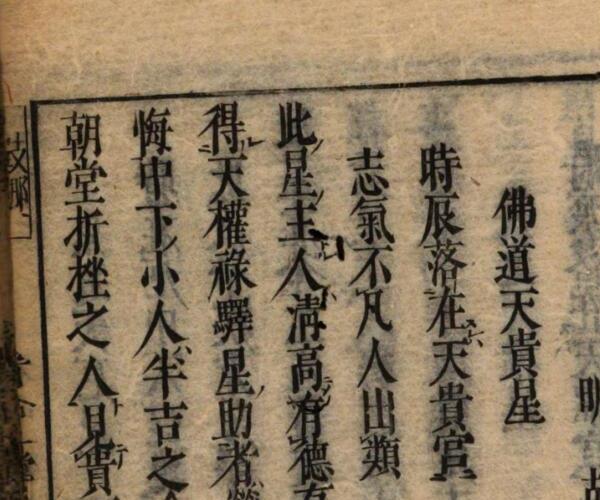 明
佛道天貴星
時辰落在天貴宮
志氣不凡人出類
此星主人清高有德
得天權祿驛星助者
悔中下小人半吉之
朝堂折挫之人見貴